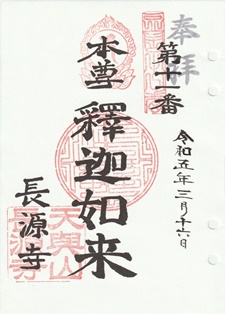 奉拝
第十一番
令和五年三月十六日
本尊
釋迦如来
長源寺
天與山
長源寺